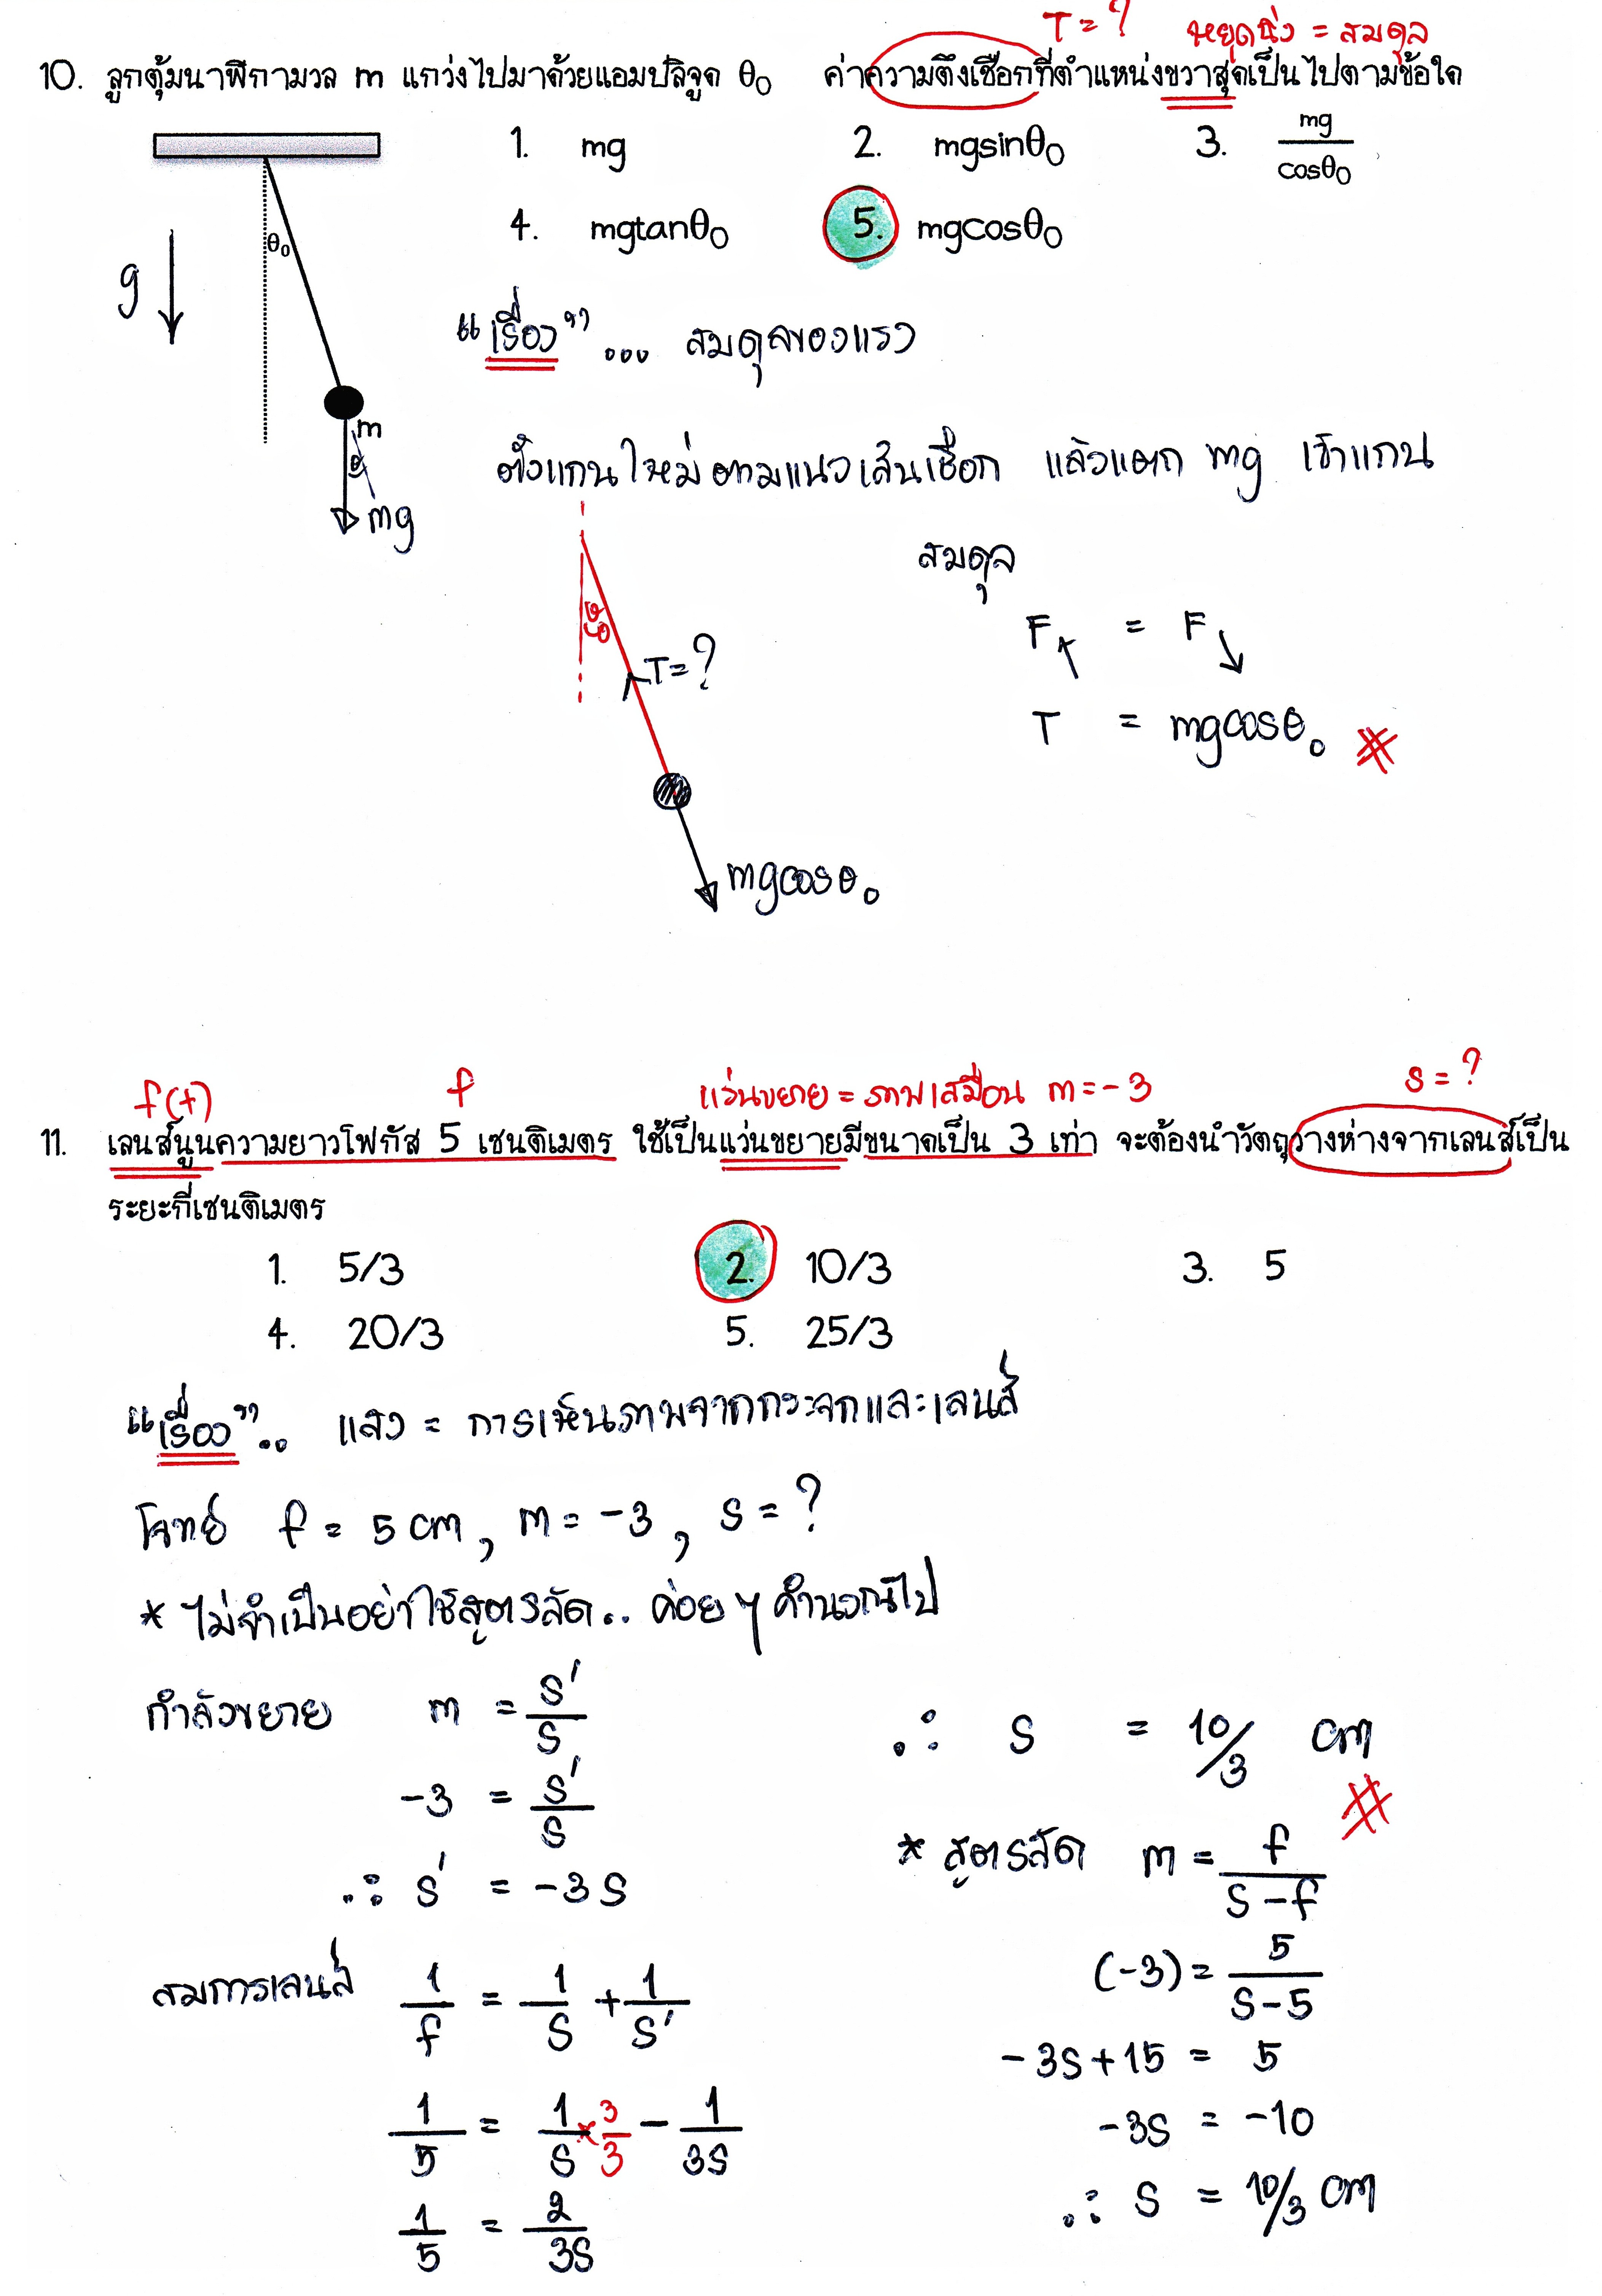 T = ? หยุดนิ่ง = สมดุล
10. ลูกตุ้มนาฬิกามวล m แกว่งไปมาด้วยแอมปลิจูด θ₀ ค่าความตึงเชือกที่ตำแหน่งขวาสุดเป็นไปตามข้อใด
1. mg 2. mgsinθ₀ 3. mg/cosθ₀
4. mgtanθ₀ 5. mgcosθ₀
θ₀
g
"เรื่อง" ... สมดุลของแรง
m
θ
mg
ตั้งแกนใหม่ตามแนวเส้นเชือก แล้วแตก mg เข้าแกน
สมดุล
θ₀
F↖ = F↘
T = ?
T = mgcosθ₀ #
mgcosθ₀
f(+) f แว่นขยาย = ภาพเสมือน m = -3 s = ?
11. เลนส์นูนความยาวโฟกัส 5 เซนติเมตร ใช้เป็นแว่นขยายมีขนาดเป็น 3 เท่า จะต้องนำวัตถุวางห่างจากเลนส์เป็น
ระยะกี่เซนติเมตร
1. 5/3 2. 10/3 3. 5
4. 20/3 5. 25/3
"เรื่อง".. แสง = การเห็นภาพจากกระจกและเลนส์
โจทย์ f = 5 cm, m = -3, s = ?
* ไม่จำเป็นอย่าใช้สูตรลัด.. ค่อยๆ คำนวณไป
กำลังขยาย m = S'/S
-3 = S'/S
∴ S' = -3S
สมการเลนส์ 1/f = 1/S + 1/S'
1/5 = 1/S × 3/3 - 1/3S
1/5 = 2/3S
∴ S = 10/3 cm #
* สูตรลัด m = f/S-f
(-3) = 5/S-5
-3S + 15 = 5
-3S = -10
∴ S = 10/3 cm